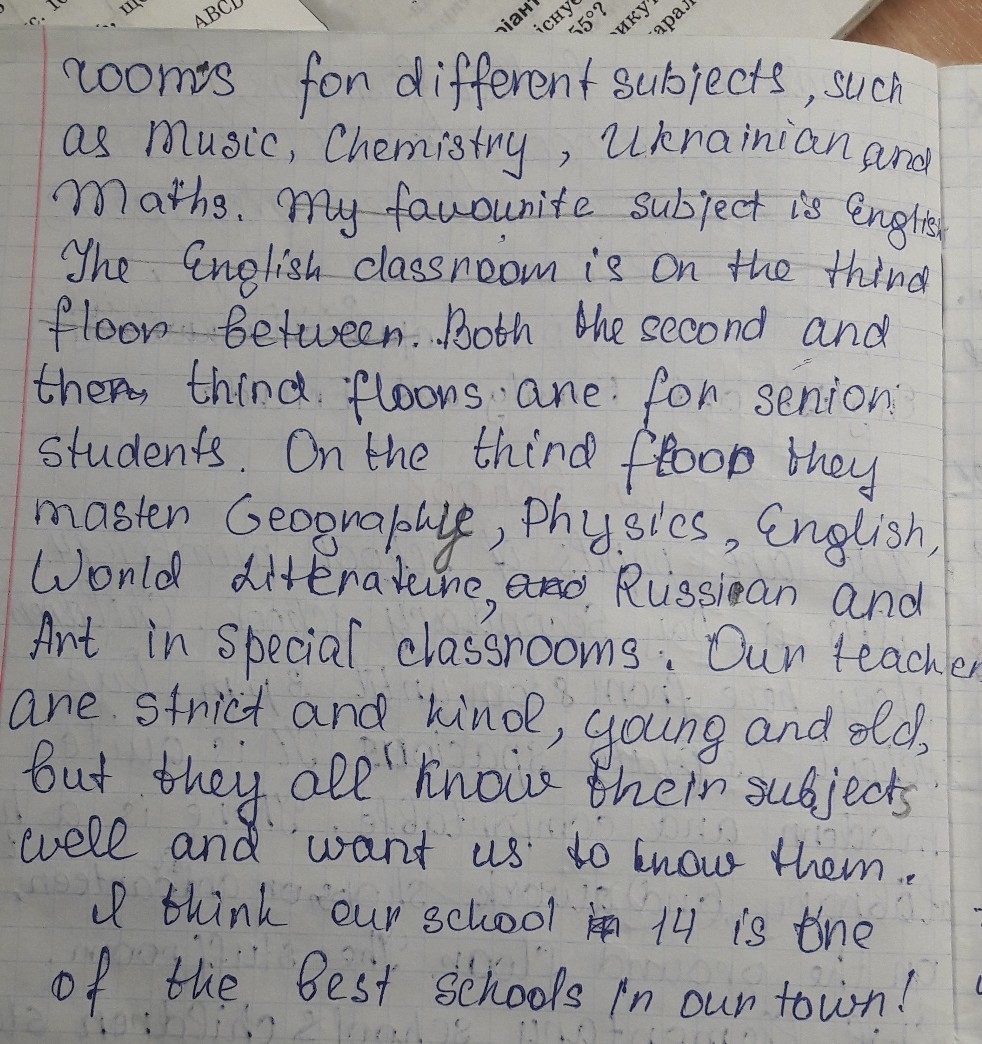 ABCD
існує
55°?
rooms for different subjects, such
as Music, Chemistry, Ukrainian and
Maths. My favourite subject is English
The English classroom is on the third
floor between. Both the second and
the third floors are for senior
students. On the third floor they
master Geography, Physics, English,
World Litterature, and Russian and
Art in special classrooms. Our teacher
are strict and kind, young and old,
but they all know their subjects
well and want us to know them.
I think our school 14 is one
of the best schools in our town!